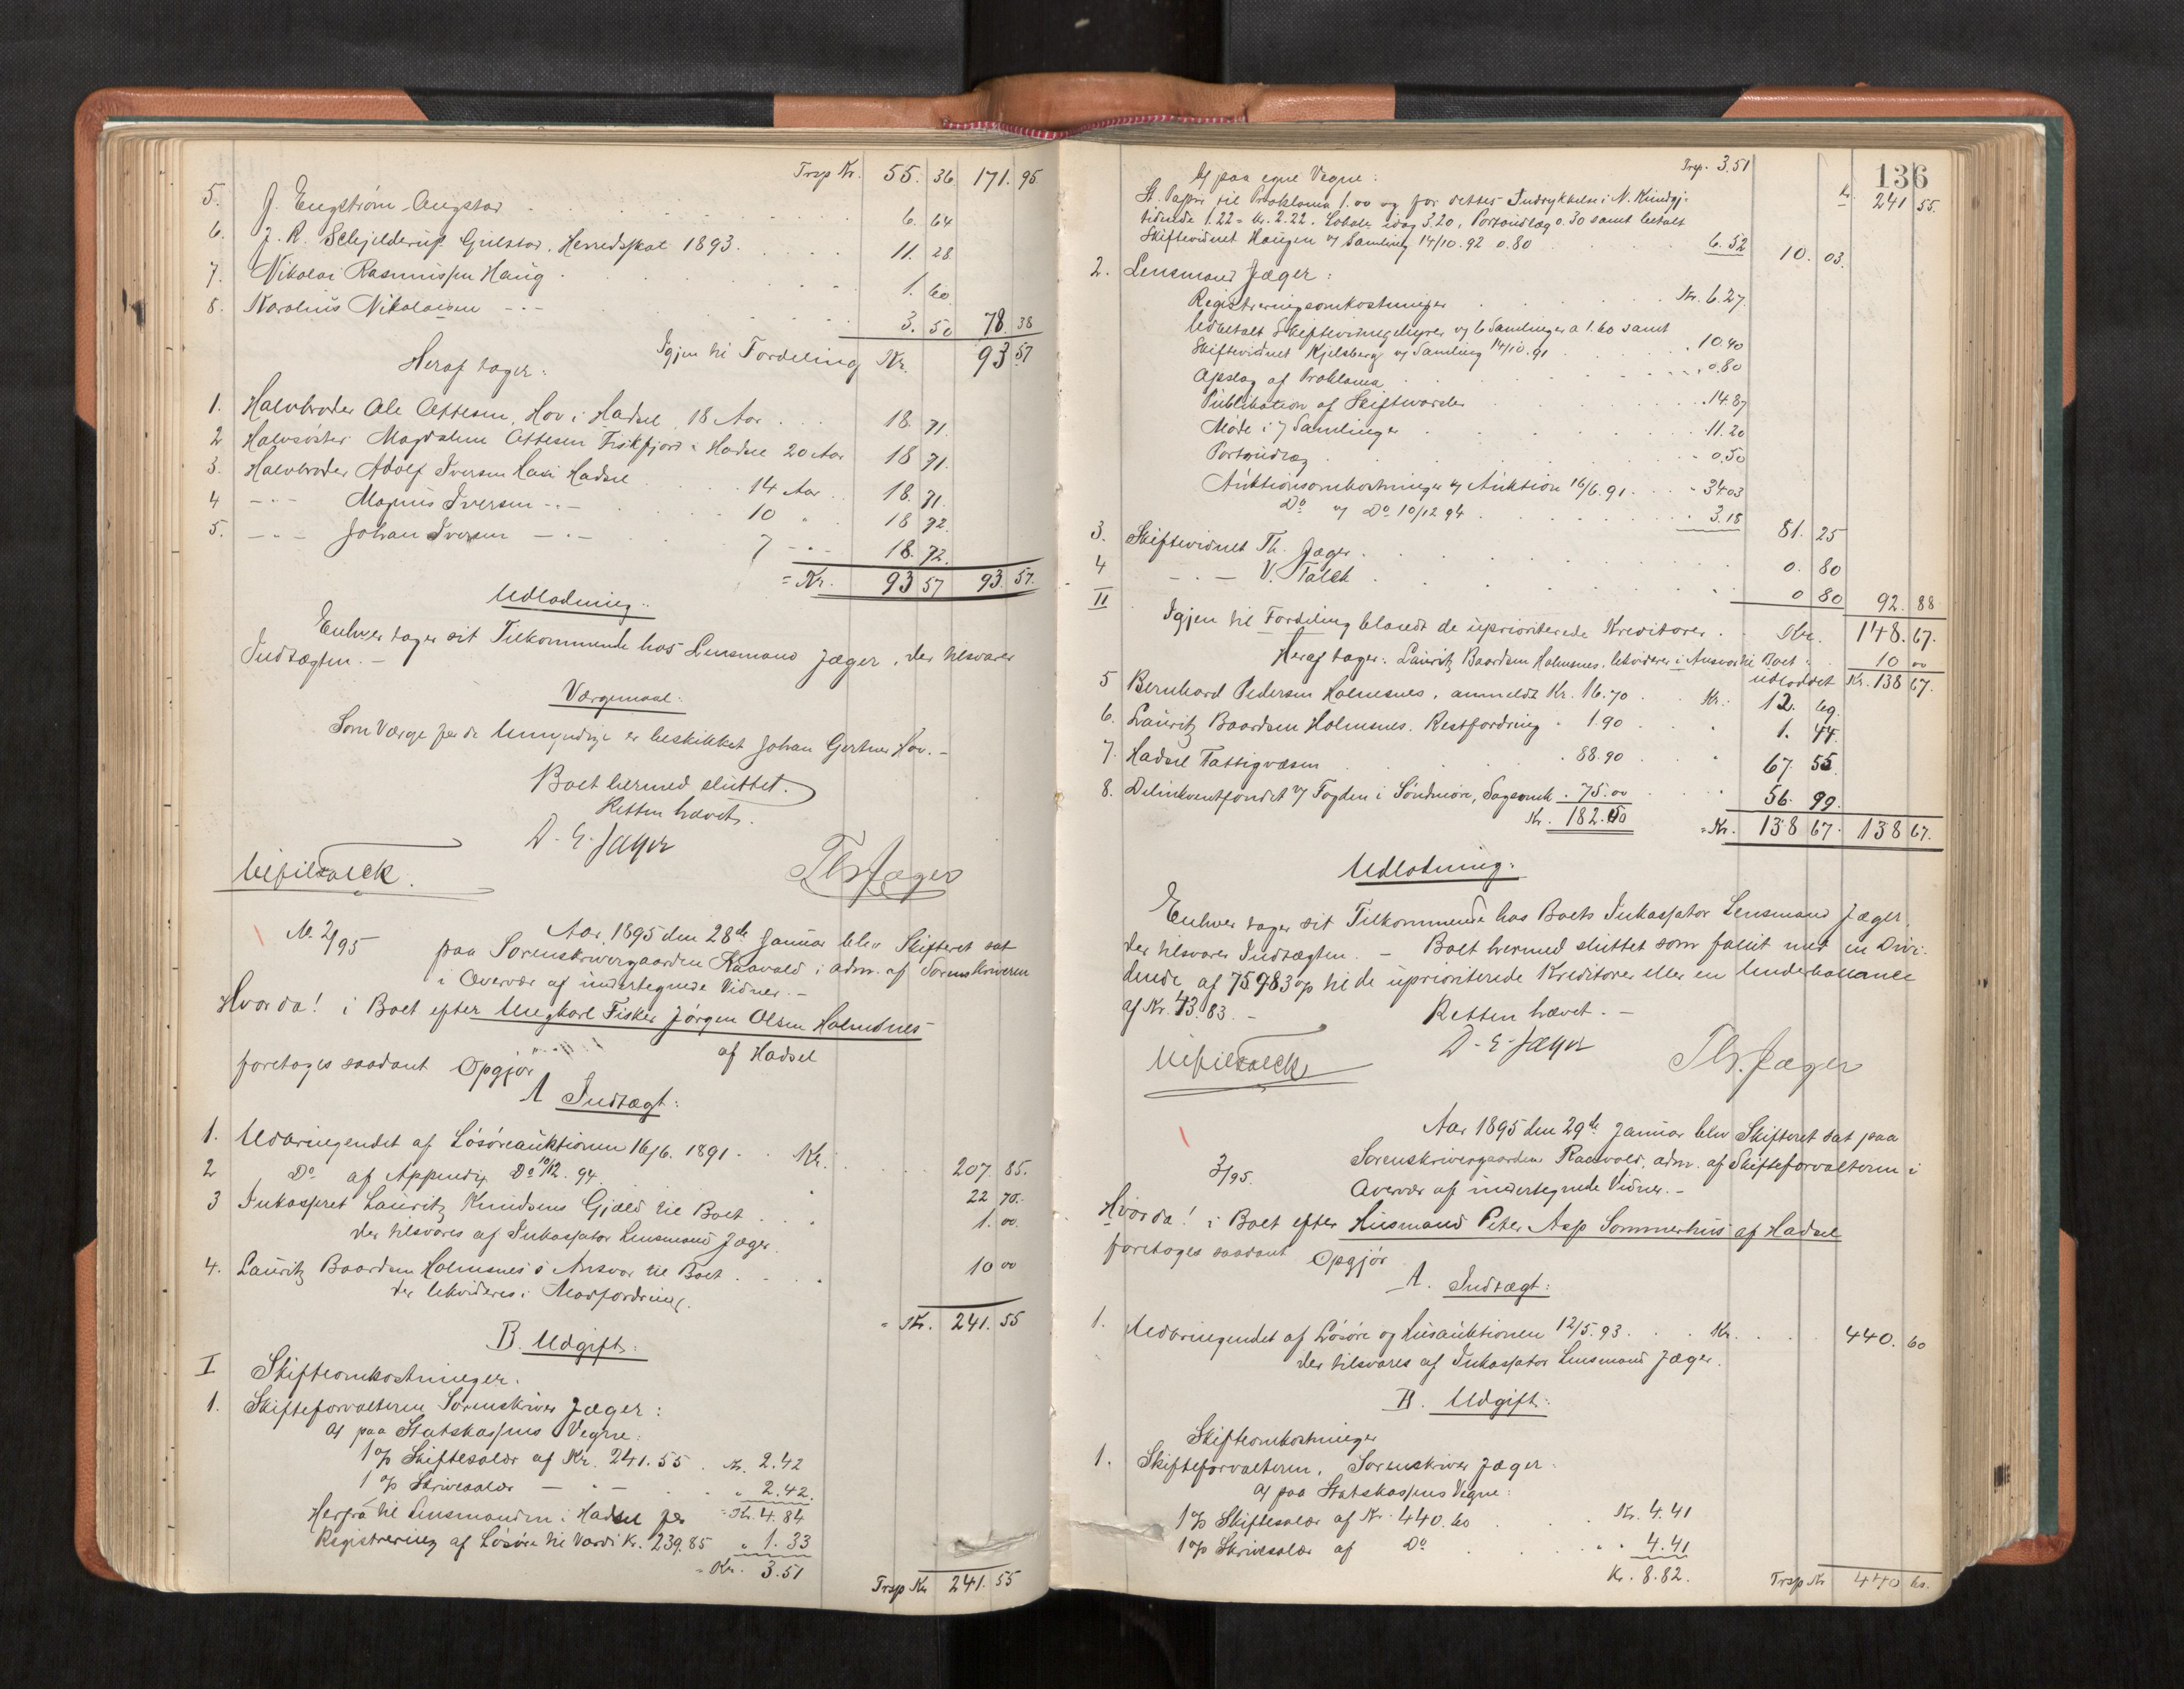 Trsp Kr. 55. 36 171. 95
5. J. Engstrøm-Angstad 6. 64
6. J. R. Schjelderup Guldstad, Herredsskat 1893. 11. 28
7. Nikolai Rasmussen Haug 1. 60
8. Karolius Nikolaisen -"- 3. 50 78. 38
Igjen til Fordeling Kr. 93 57
Heraf tager:
1. Halvbroder Ole Ottesen, Hov i Hadsel, 18 Aar 18. 71.
2 Halvsøster Magdalene Ottesen Fiskfjord i Hadsel 20 Aar 18 71.
3. Halvbroder Adolf Iversen Hov i Hadsel 14 Aar 18. 71.
4 -"- Magnus Iversen -"- 10 " 18 72.
5. -"- Johan Iversen -"- 7 -"- 18. 72.
= Kr. 93 57 93. 57.
Udlodning:
Enhver tager sit Tilkommende hos Lensmand Jæger, der tilsvarer
Indtægten. -
Værgemaal:
Som Værge for de Umyndige er beskikket Johan Gertner Hov. -
Boet hermed sluttet.
Retten hævet.
D. E. Jæger
Th. Jæger
N. 2/95 Aar 1895 den 28de Januar blev Skifteret sat
paa Sorenskrivergaarden Raavold i adm. af Sorenskriveren
i Overvær af undertegnede Vidner. -
Hvorda! i Boet efter Ungkarl Fisker Jørgen Olsen Holmsnes
af Hadsel
foretoges saadant Opgjør
A Indtægt:
1. Udbringendet af Løsøreauktionen 16/6. 1891. Kr. 207. 85.
2 Do af Appendix Do 10/12. 94. 22 70.
3 Inkasseret Lauritz Knudsens Gjæld til Boet 1. 00.
der tilsvares af Inkassator Lensmand Jæger.
4. Lauritz Baardsen Holmsnes's Ansvar til Boet 10 00
der likvideres i Modfordring.
= Kr. 241. 55
B. Udgift:
I Skifteomkostninger.
1. Skifteforvalteren Sorenskriver Jæger:
a) paa Statskassens Vegne:
1 % Skiftesalær af Kr. 241.55 Kr. 2.42
1 % Skrivesalær -"- " 2.42.
= Kr. 4.84
Herfra til Lensmanden i Hadsel for
Registrering af Løsøre til Værdi Kr. 239.85 " 1.33
= Kr. 3.51
Trsp Kr 241. 55
136
Trsp. 3.51 Kr. 241 55.
b) paa egne Vegne:
St. Papir til Proklama 1.00 og for dettes Indrykkelse i N. Kundgj-
tidende 1.22 = Kr. 2.22. Lokale idag 3.20, Portoudlæg 0.30 samt betalt
Skiftevidnet Haugen v/ Samling 14/10. 92 0.80 6.52 10. 03.
2. Lensmand Jæger:
Registreringsomkostninger Kr. 6.27.
Udbetalt Skiftevidnegebyrer v/ 6 Samlinger a 1.60 samt
Skiftevidnet Kjelsberg v/ Samling 14/10. 91 10.40
Opslag af Proklama 0.80
Publikation af Skiftevarsler 14.87
Møde i 7 Samlinger 11.20
Portoudlæg 0.50
Auktionsomkostninger v/ Auktion 16/6.91. 34.03
Do v/ Do 10/12 94 3.18 81. 25
3. Skiftevidnet Th. Jæger 0. 80
4 -"- V. Falck 0 80 92. 88
II Igjen til Fordeling blandt de uprioriterede Kreditorer Kr. 148. 67.
Heraf tager: Lauritz Baardsen Holmsnes, likviderer i Ansvar til Boet 10 00
udloddet Kr. 138 67.
5 Bernhard Pedersen Holmsnes, anmeldt Kr. 16.70 Kr. 12. 69.
6. Lauritz Baardsen Holmsnes. Restfordring " 1.90 1. 44.
7. Hadsel Fattigvæsen " 88.90 67. 55.
8. Delinkventfondet v/ Fogden i Søndmøre, Sagsomk. 75.00 56. 99.
Kr. 182.50 = Kr. 138 67. 138 67.
Udlodning:
Enhver tager sit Tilkommende hos Boets Inkassator Lensmand Jæger,
der tilsvarer Indtægten. - Boet hermed sluttet som fallit med en Divi-
dende af 75.983 % til de uprioriterede Kreditorer eller en Underballance
af Kr. 43.83. - Retten hævet. -
D. E. Jæger
Th. Jæger
Aar 1895 den 29de Januar blev Skifteret sat paa
3/95. Sorenskrivergaarden Raavold, adm. af Skifteforvalteren i
Overvær af undertegnede Vidner. -
Hvorda! i Boet efter Husmand Peter Asp Sommerhus af Hadsel
foretoges saadant Opgjør
A. Indtægt:
1. Udbringendet af Løsøre og Husauktionen 12/5. 93. Kr. 440. 60
der tilsvares af Inkassator Lensmand Jæger.
B. Udgift:
Skifteomkostninger
1. Skifteforvalteren, Sorenskriver Jæger.
a) paa Statskassens Vegne:
1 % Skiftesalær af Kr. 440.60 Kr. 4.41
1 % Skrivesalær af Do " 4.41
Kr. 8.82.
Trsp Kr 440 60.